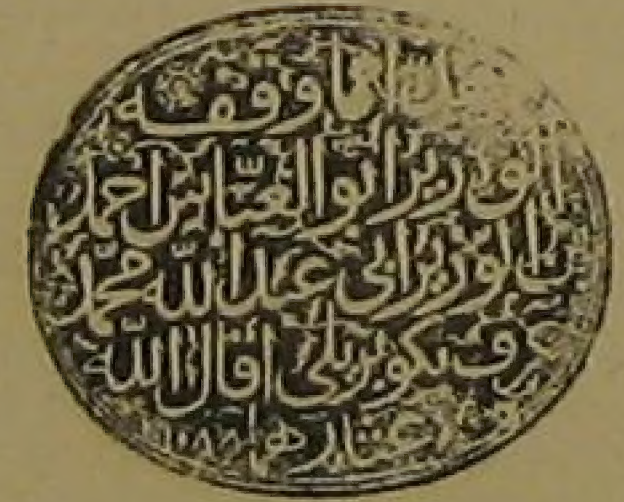 مما وقفه
الوزير ابو العبّاس احمد
بن الوزير ابى عبد الله محمّد
عرف بكوبريلى اقال الله
عثارهما ١٠٨٨